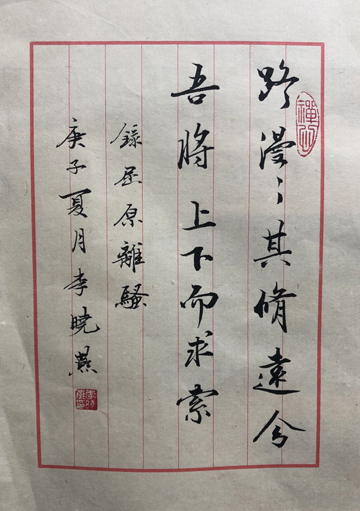 路漫〻其脩遠兮
吾將上下而求索
錄屈原離騷
庚子夏月李曉燕